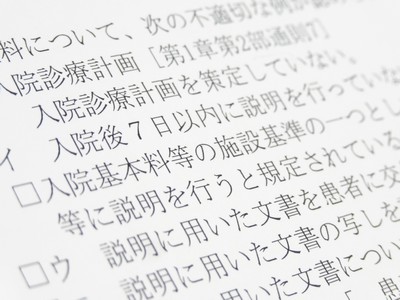 料について、次の不適切な例が認
入院診療計画［第1章第2部通則7］
入院診療計画を策定していない。
イ 入院後7日以内に説明を行っていな
□入院基本料等の施設基準の一つとし
等に説明を行うと規定されている
説明に用いた文書を患者に交
□ウ 説明に用いた文書の写しを
用いた文書につい
患